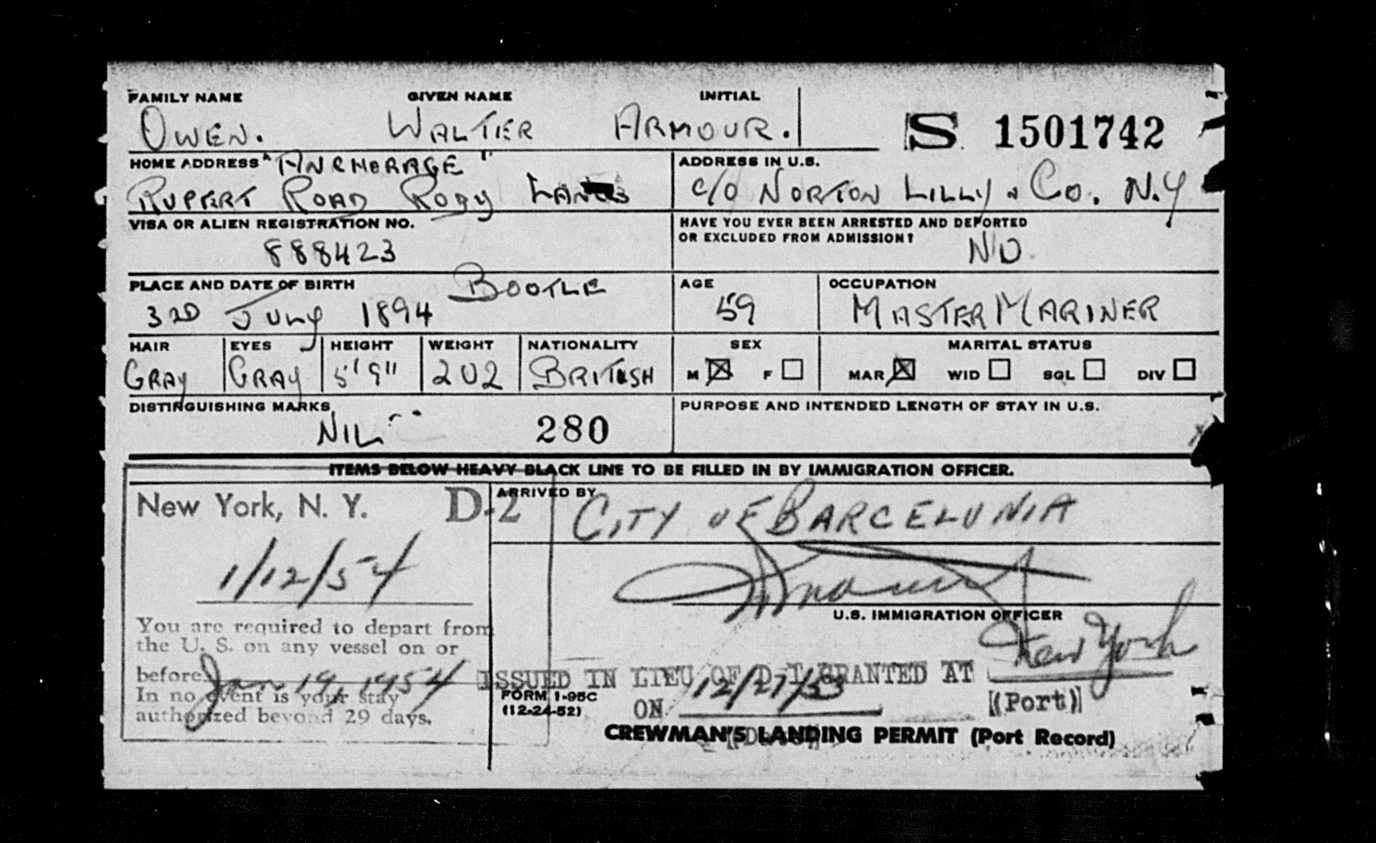 FAMILY NAME GIVEN NAME INITIAL
OWEN. WALTER ARMOUR. S 1501742
HOME ADDRESS "ANCHORAGE" ADDRESS IN U.S.
RUPERT ROAD ROBY LANCS C/O NORTON LILLY & CO. N.Y
VISA OR ALIEN REGISTRATION NO. HAVE YOU EVER BEEN ARRESTED AND DEPORTED
OR EXCLUDED FROM ADMISSION? NO.
888423
PLACE AND DATE OF BIRTH BOOTLE AGE OCCUPATION
3RD JULY 1894 59 MASTER MARINER
HAIR EYES HEIGHT WEIGHT NATIONALITY SEX MARITAL STATUS
GRAY GRAY 5'9" 202 BRITISH M F MAR WID SGL DIV
DISTINGUISHING MARKS PURPOSE AND INTENDED LENGTH OF STAY IN U.S.
NIL 280
ITEMS BELOW HEAVY BLACK LINE TO BE FILLED IN BY IMMIGRATION OFFICER.
New York, N. Y. D-2 ARRIVED BY
CITY OF BARCELONIA
1/12/54
U.S. IMMIGRATION OFFICER
You are required to depart from
the U. S. on any vessel on or
before Jan 19, 1954
In no event is your stay
authorized beyond 29 days.
ISSUED IN LIEU OF D-1 GRANTED AT New York
(Port)
FORM I-95C
(12-24-52)
ON 12/27/53
CREWMAN'S LANDING PERMIT (Port Record)